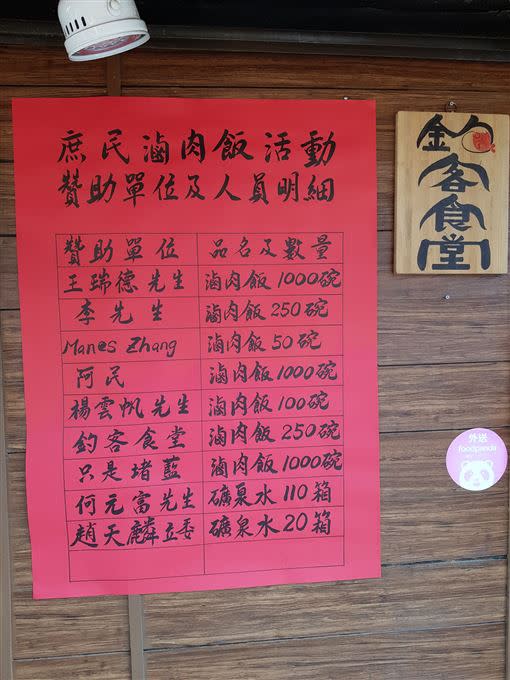 庶民滷肉飯活動
贊助單位及人員明細
贊助單位 品名及數量
王瑞德先生 滷肉飯1000碗
李先生 滷肉飯250碗
Manes Zhang 滷肉飯50碗
阿民 滷肉飯1000碗
楊雲帆先生 滷肉飯100碗
釣客食堂 滷肉飯250碗
只是堵藍 滷肉飯1000碗
何元富先生 礦泉水110箱
趙天麟立委 礦泉水20箱
釣客食堂
外送
foodpanda